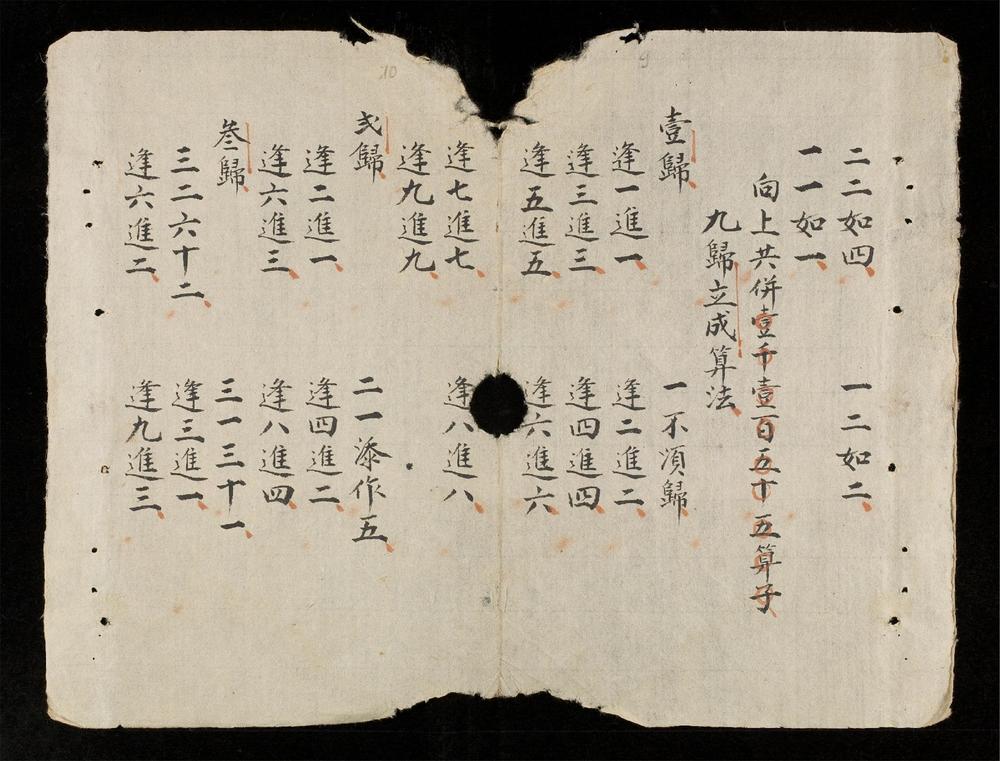 二二如四 一二如二
一一如一
向上共併壹千壹百五十五算子
九歸立成算法
壹歸 一不湏歸
逢一進一 逢二進二
逢三進三 逢四進四
逢五進五 逢六進六
逢七進七 逢八進八
逢九進九
弍歸 二一添作五
逢二進一 逢四進二
逢六進三 逢八進四
叁歸 三一三十一
三二六十二 逢三進一
逢六進二 逢九進三
9
10